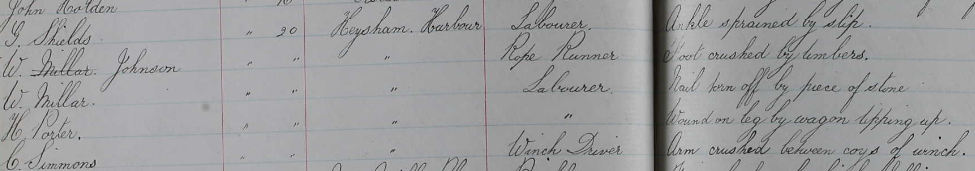 John Holden
G. Shields " 20 Heysham Harbour Labourer. Ankle sprained by slip.
W. Millar. Johnson " " " Rope Runner Foot crushed by timbers.
W. Millar. " " " Labourer. Nail torn off by piece of stone
H. Porter. " " " " Wound on leg by wagon tipping up.
C. Simmons " " " Winch Driver Arm crushed between cogs of winch.